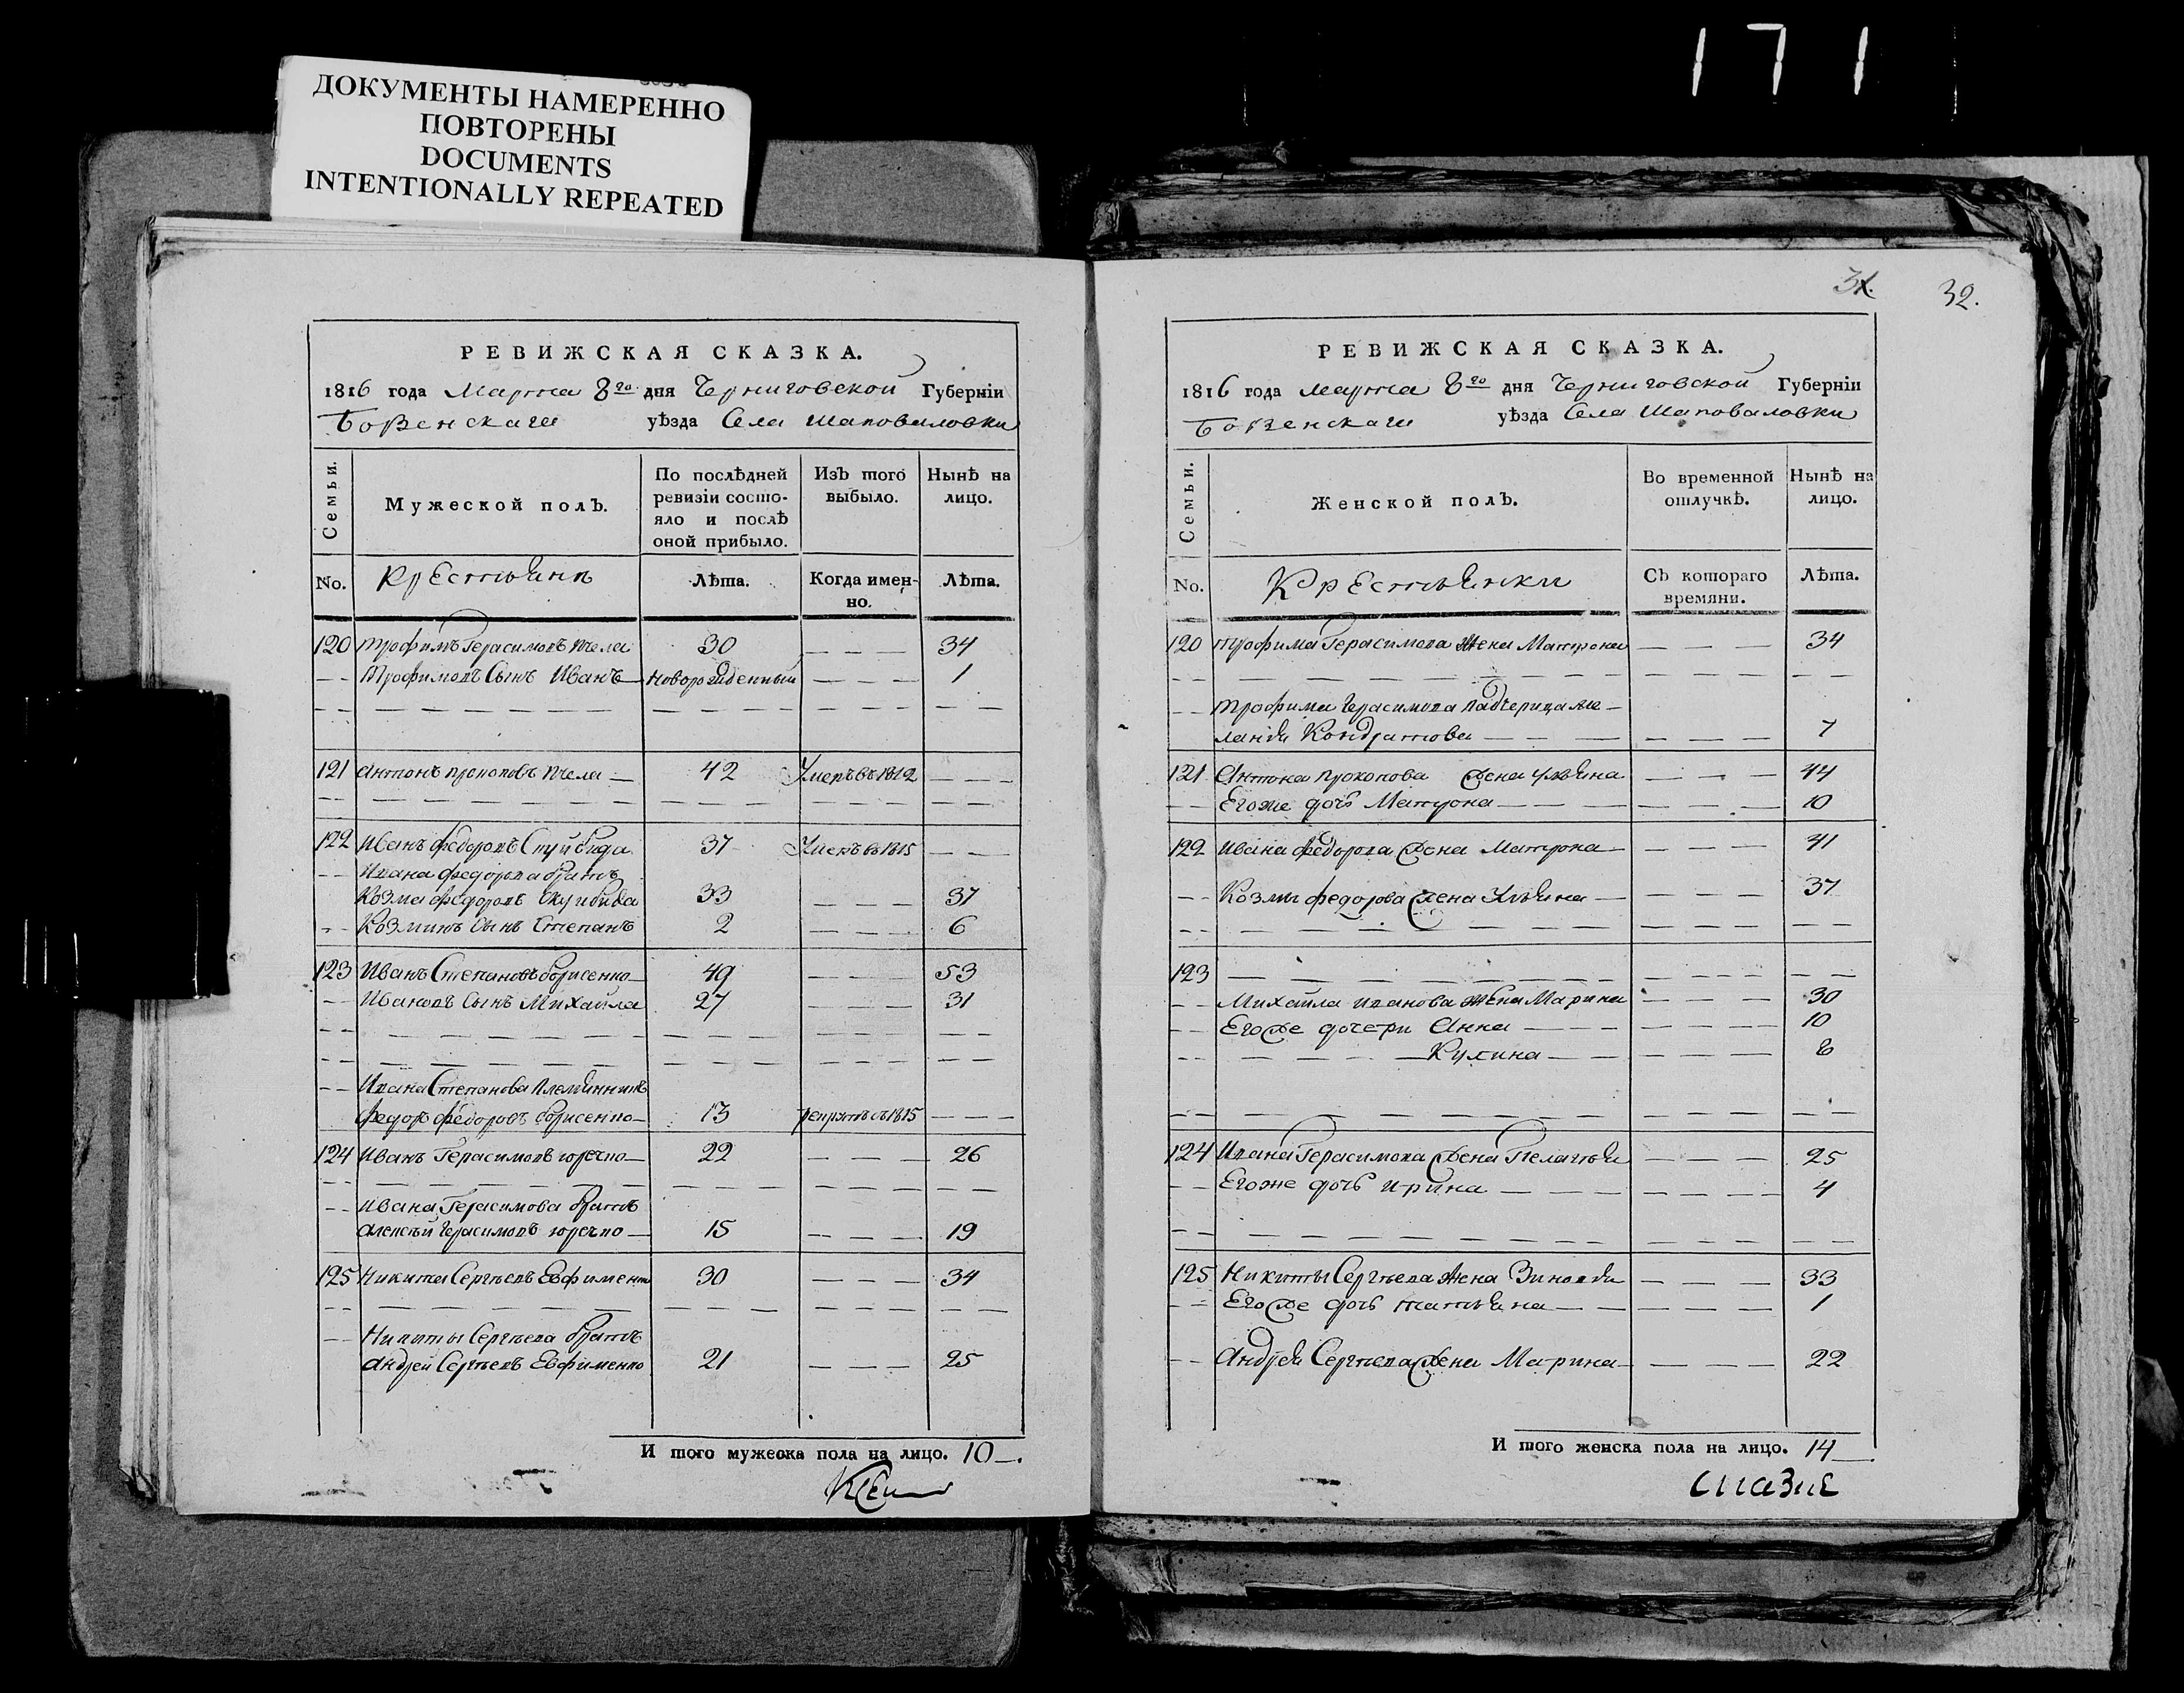 171
ДОКУМЕНТЫ НАМЕРЕННО
ПОВТОРЕНЫ
DOCUMENTS
INTENTIONALLY REPEATED
РЕВИЖСКАЯ СКАЗКА.
1816 года Марта 8го дня Черниговской Губернiи
Борзенскаго уѣзда Села Шаповаловки
Семьи.
Мужеской полЪ.
По послѣдней ревизiи состо-
яло и послѣ оной прибыло.
ИзЪ того выбыло.
НынѣЪ на лицо.
No. Крестьянъ Лѣта. Когда имен-
но. Лѣта.
120 Трофимъ Герасимовъ Пчела 30 — — — 34
— — Трофимовъ Сынъ Иванъ — новорожденный — — — 1
121 Антонъ Прокоповъ Пчела — 42 Умеръ въ 1812 — — —
122 Иванъ Федоровъ Скуйбида 37 Умеръ въ 1815 — — —
— — Ивана Федорова братъ
Козма Федоровъ Скуибида 33 — — — 37
— — Козминъ Сынъ Степанъ 2 — — — 6
123 Иванъ Степановъ Борисенко — 49 — — — 53
— — Ивановъ Сынъ Михайла 27 — — — 31
— — Ивана Степанова Племянникъ
Федоръ Федоровъ Борисенко — 13 1815 — — —
124 Иванъ Герасимовъ Юрченко — 22 — — — 26
— — Ивана Герасимова братъ
Алексѣй Герасимовъ — 15 — — — 19
125 Никита Сергѣевъ Евфименко 30 — — — 34
— — Никиты Сергѣева братъ
Андрей Сергѣевъ Евфименко 21 — — — 25
И того мужеска пола на лицо. 10 —.
31. 32.
РЕВИЖСКАЯ СКАЗКА.
1816 года марта 8го дня Черниговской Губернiи
Борзенскаго уѣзда Села Шаповаловки
Семьи.
Женской полЪ.
Во временной отлучкѣ.
Нынѣ на лицо.
No. Крестьянки СЪ котораго
времяни. Лѣта.
120 Трофима Герасимова Жена Матрона — — — 34
— — Трофима Герасимова Падчерица Ме-
ланья Кондратова — — — — — — 7
121 Антона Прокопова жена Ульяна — — — 44
— — Егоже дочь Матрона — — — — — — 10
122 Ивана Федорова жена Матрона — — — — 41
— — Козмы Федорова жена Ульяна — — — — 37
123 — — — — — — — — — — — —
— — Михайла Иванова жена Марина — — — 30
— — Егоже дочери Анна — — — — — — 10
— — — Кулина — — — — — 8
124 Ивана Герасимова жена Пелагѣя — — — 25
— — Егоже дочь Ирина — — — — — — 4
125 Никиты Сергѣева Жена Зиновья — — — 33
— — Егоже дочь Татьяна — — — — — 1
— — Андрея Сергѣева жена Марина — — — — 22
И того женска пола на лицо. 14 —.